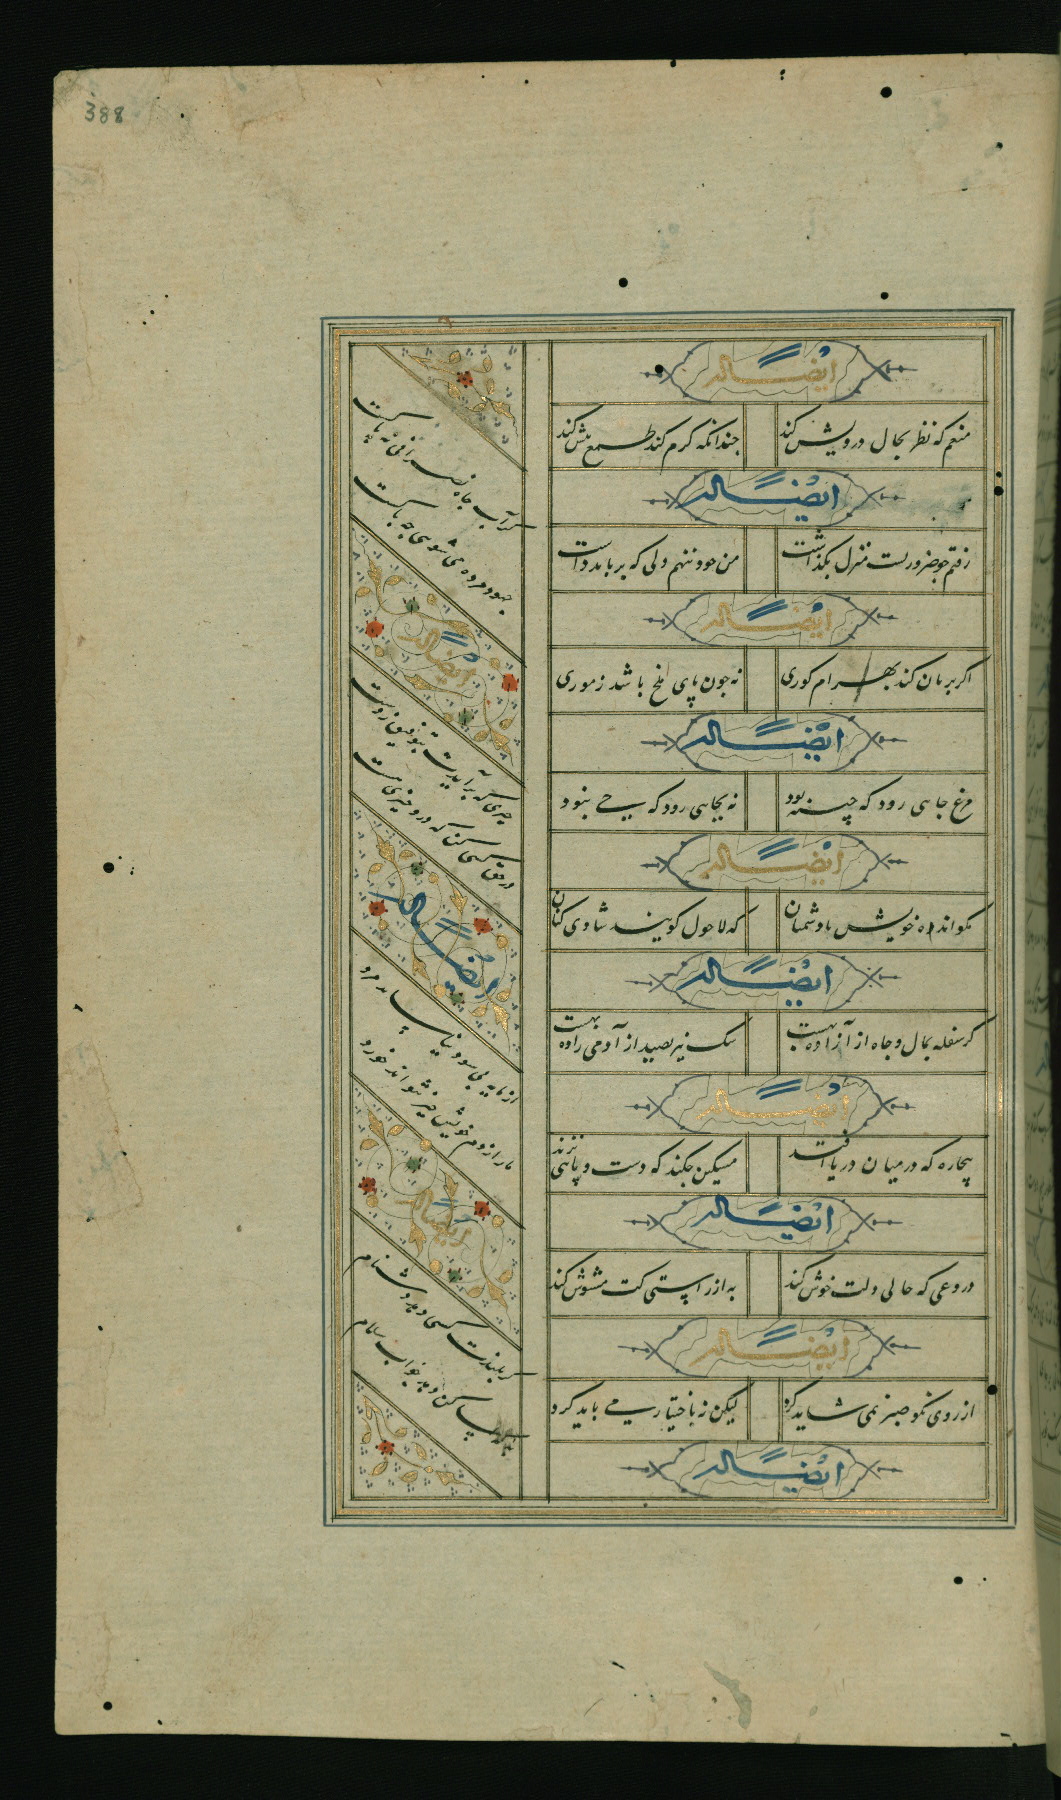 388
ایضاً له
منعم که نظر بحال درویش کند
چندانکه کرم کند طمع بیش کند
ایضاً له
رفتم چو ضرورلست منزل بگذاشت
من خود ننهم ولی که برباید داشت
ایضاً له
اگر بریان کند بهرام کوری
نه چون پای ملخ باشد ز موری
ایضاً له
مرغ جایی رود که چینه بود
نه بجایی رود که چی نبود
ایضاً له
مکو انداه خویش با دشمنان
که لا حول گویند شادی کنان
ایضاً له
گر سفله بمال و جاه از آزاده بهست
سک نیز بصید از آدمی زاده بهست
ایضاً له
بیچاره که در میان دریا افتد
مسکین چکند که دست و پایی نزند
ایضاً له
دروغی که حالی دلت خوش کند
به از راستی کت مشوش کند
ایضاً له
از روی نکو صبر نمی شاید کرد
لیکن نه باختیار می باید کرد
ایضاً له
گر آب چاه نصرانی نه پاکست
جهود مرده می شوی چه باکست
ایضاً له
چیزی که برآیدت بتوفیق از دست
در حق کسی کن که درو چیزی هست
ایضاً له
از مایه بی سود نیاساید مرد
مار از دم خویش چند بتواند خورد
ایضاً له
گر بلندت کسی دهد دشنام
به که ساکن دهد جواب سلام